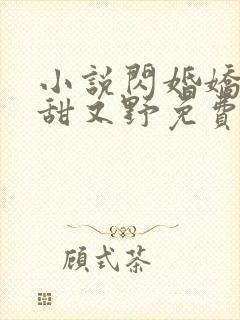 小說閃婚嬌
甜又野免費
顧式茶